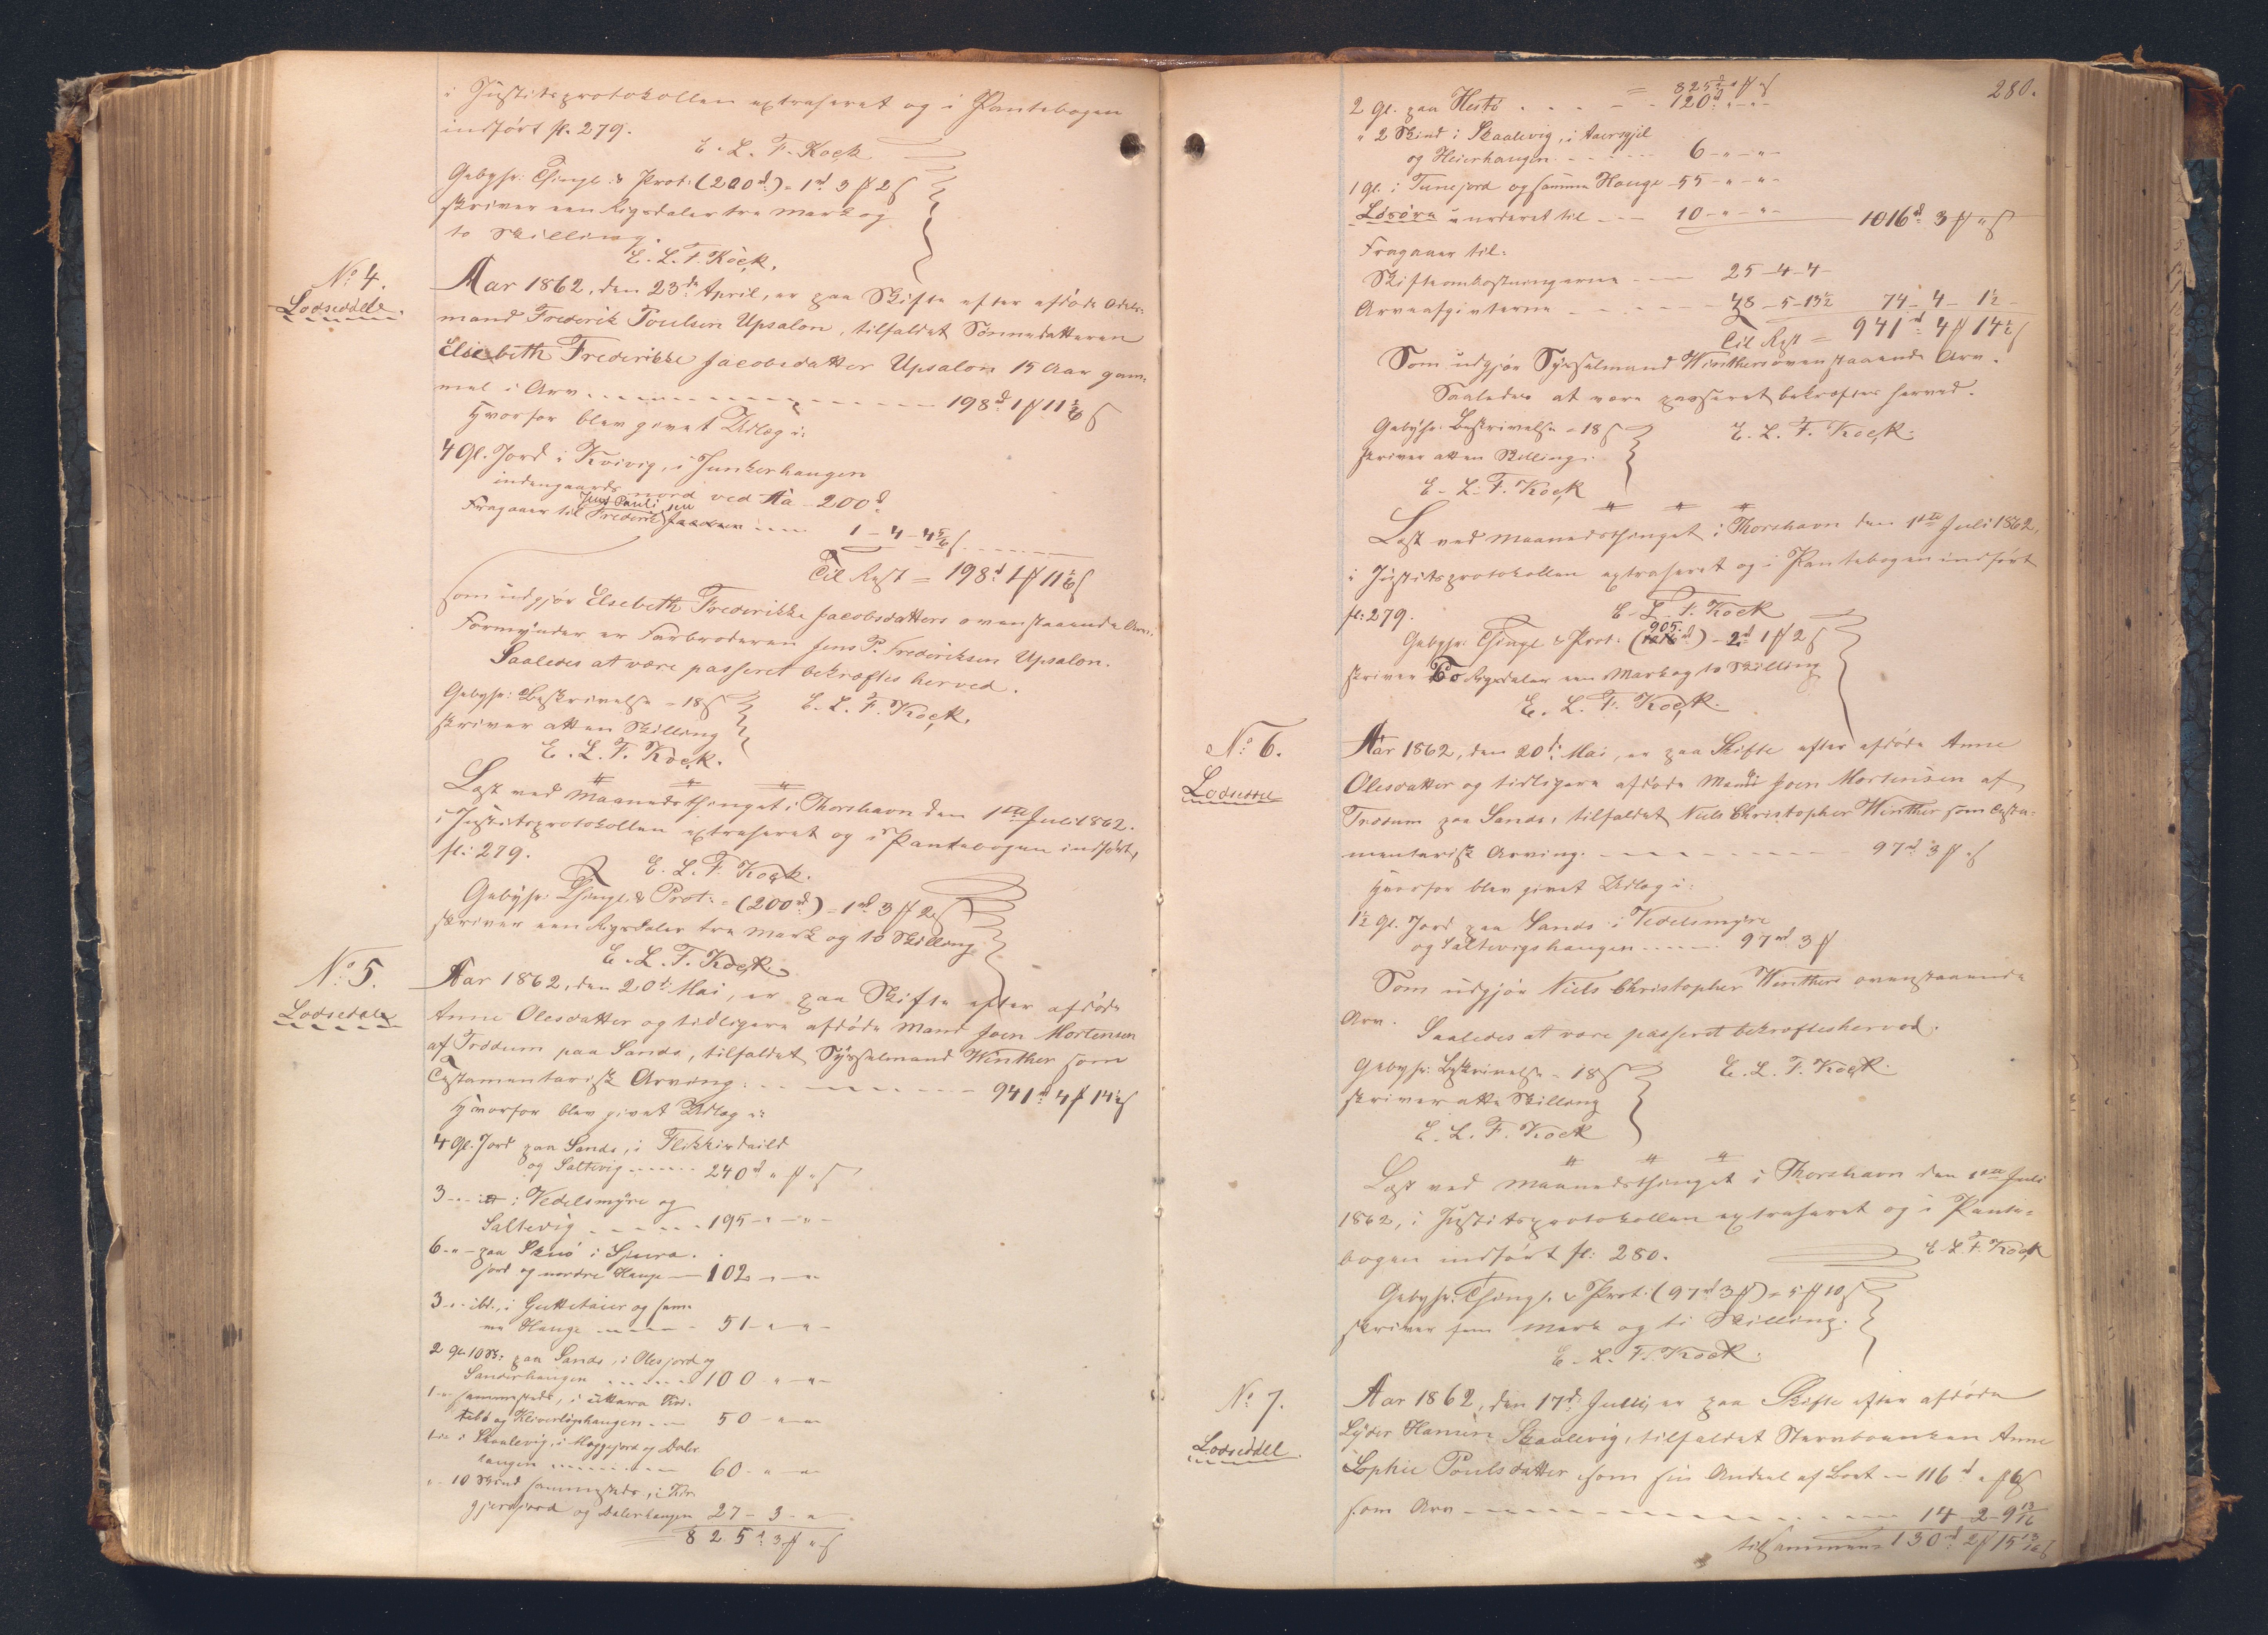 i Justitsprotokollen extraheret og i Pantebogen
indført fl. 279.
E. L. F. Kock
Gebyhr: Thingl: & Prot: (200rd:) = 1rd 3 ₰ 2 ß
skriver een Rigsdaler tre Mark og
to Skilling.
E. L. F. Kock.
No 4.
Lodseddel.
Aar 1862, den 23de April, er paa Skifte efter afdøde Odels-
mand Frederik Poulsen Upsalon, tilfaldet Sønnedatteren
Elsebeth Frederikke Jacobsdatter Upsalon 15 Aar gam-
mel i Arv 198rd 1 ₰ 11 1/6 ß
Hvorfor blev givet Udlæg i:
4 Gl. Jord i Kvivig, i Junkerhaugen
indengaards nord ved Aa 200rd
Jens Pauli
Fragaaer til Frederiksen 1 – 4 – 4 5/6 ß
Til Rest = 198rd 1 ₰ 11 1/6 ß
som udgjør Elsebeth Frederikke Jacobsdatters ovenstaaende Arv.
Formynder er Farbroderen Jens P. Frederiksen Upsalon.
Saaledes at være passeret bekræftes herved.
Gebyhr: Beskrivelse = 18 ß E. L. F. Kock.
skriver atten Skilling
E. L. F. Kock.
Læst ved Maanedsthinget i Thorshavn den 1ste Juli 1862.
i Justitsprotokollen extraheret og i Pantebogen indført
fl: 279.
E. L. F. Kock.
Gebyhr Thingl. & Prot: = (200rd) = 1rd 3 ₰ 2 ß
skriver een Rigsdaler tre Mark og to Skilling.
E. L. F. Kock
No 5.
Lodseddel
Aar 1862, den 20de Mai, er paa Skifte efter afdøde
Anne Olesdatter og tidligere afdøde Mand Joen Mortensen
af Trødum paa Sands, tilfaldet Sysselmand Winther som
Testamentarisk Arving 941rd 4 ₰ 14 1/2 ß
Hvorfor blev givet Udlæg i:
4 Gl. Jord paa Sands, i
og Saltevig 240rd " ₰ " ß
3 – " – i Vedelsmyre og
Saltevig 195 – " – " –
6 – " – paa Skuø i Spura-
jord og nordre Hauge – 102 – " – "
3 – " – ibd., i og sam-
me Hauge 51 – " – " –
2 Gl. 10 Sk: paa Sands, i Olesjord og
Sanderhaugen 100 – " – " –
1 – " – sammesteds, i
og 50 – " – " –
i Skaalevig, i og Daler-
haugen 60 – " – " –
" – 10 Skind sammesteds, i
gjerdejord og Dalerhaugen 27 – 3 – "
825rd 3 ₰ " ß
280.
= 825rd 3 ₰ " ß
2 Gl. paa Hestø 120rd " – " –
" 2 Skind i Skaalevig, i
og Heierhaugen 6 – " – " –
1 Gl. i Tunejord og samme Hauge – 55 – " – " –
Løsøre vurderet til 10 – " – " – 1016rd 3 ₰ " ß
Fragaaer til:
Skifteomkostningerne 25 – 4 – 4 –
Arveafgifterne 48 – 5 – 13 1/2 74 – 4 – 1 1/2 –
Til Rest = 941rd 4 ₰ 14 1/2 ß
Som udgjør Sysselmand Winthers ovenstaaende Arv.
Saaledes at være passeret bekræftes herved.
Gebyhr: Beskrivelse = 18 ß E. L. F. Kock.
skriver atten Skilling.
E. L. F. Kock
Læst ved Maanedsthinget i Thorshavn den 1ste Juli 1862,
i Justitsprotokollen extraheret og i Pantebogen indført
fl: 279.
E. L. F. Kock
905.
Gebyhr: Thingl & Prot: (1016rd) – 2rd 1 ₰ 2 ß
skriver To Rigsdaler een Mark og to Skilling
E. L. F. Kock.
No: 6.
Lodseddel
Aar 1862, den 20de Mai, er paa Skifte efter afdøde Anne
Olesdatter og tidligere afdøde Mand Joen Mortensen af
Trødum paa Sands, tilfaldet Niels Christopher Winther som Testa-
mentarisk Arving 97rd 3 ₰ " ß
Hvorfor blev givet Udlæg i:
1 1/2 Gl. Jord paa Sands i Vedelsmyre
og Saltevigshaugen 97rd 3 ₰
Som udgjør Niels Christopher Winthers ovenstaaende
Arv.
Saaledes at være passeret bekræftes herved.
Gebyhr: Beskrivelse – 18 ß E. L. F. Kock.
skriver atten Skilling
E. L. F. Kock
Læst ved Maanedsthinget i Thorshavn den 1ste Juli
1862, i Justitsprotokollen extraheret og i Pante-
bogen indført fl: 280. E. L. F. Kock
Gebyhr: Thingl. & Prot. (97rd 3 ₰) = 5 ₰ 10 ß
skriver fem Mark og ti Skilling.
E. L. F. Kock.
No 7.
Lodseddel
Aar 1862, den 17de Juli, er paa Skifte efter afdøde
Lyder Hansen Skaalevig, tilfaldet Stervboenken Anne
Sophie Poulsdatter som sin Andeel af Boet – 116rd " ₰ 6 ß
som Arv 14 – 2 – 9 13/16
tilsammen 130rd 2 ₰ 15 13/16 ß